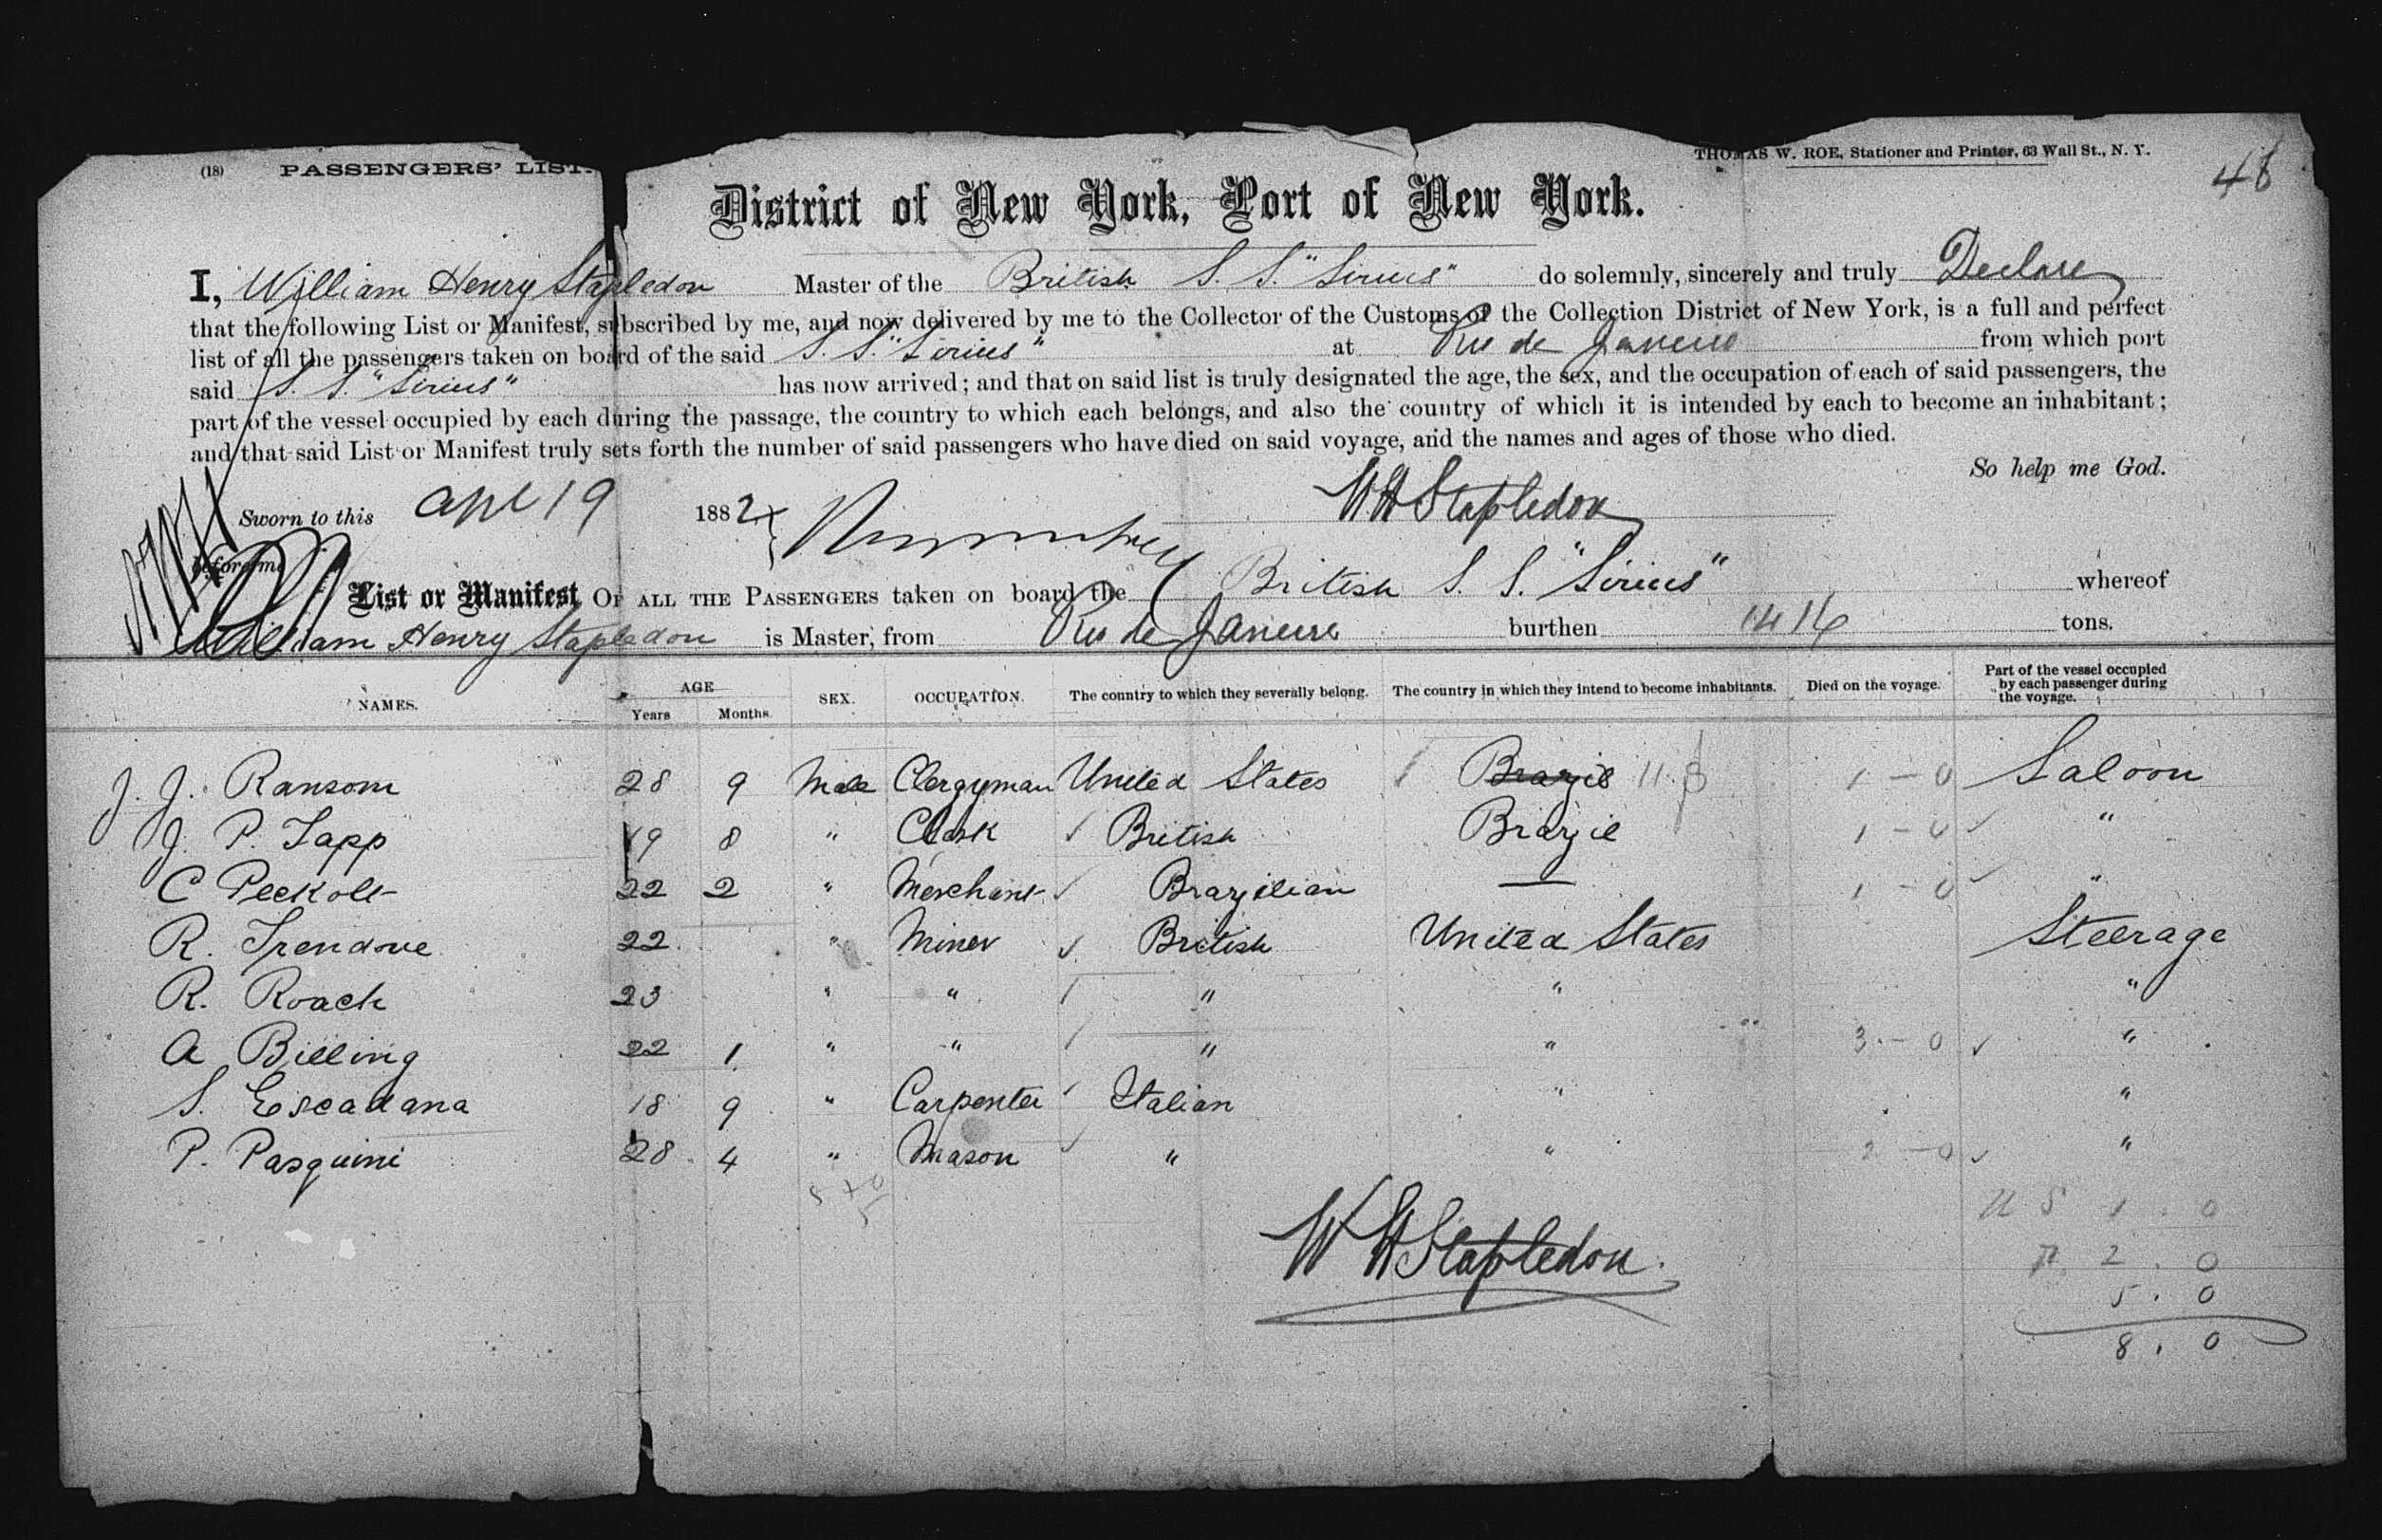 (18) PASSENGERS' LIST.
THOMAS W. ROE, Stationer and Printer, 63 Wall St., N. Y.
48
District of New York, Port of New York.
I, William Henry Stapledon Master of the British S. S. "Sirius" do solemnly, sincerely and truly Declare
that the following List or Manifest, subscribed by me, and now delivered by me to the Collector of the Customs of the Collection District of New York, is a full and perfect
list of all the passengers taken on board of the said S. S. "Sirius" at Rio de Janeiro from which port
said S. S. "Sirius" has now arrived; and that on said list is truly designated the age, the sex, and the occupation of each of said passengers, the
part of the vessel occupied by each during the passage, the country to which each belongs, and also the country of which it is intended by each to become an inhabitant;
and that said List or Manifest truly sets forth the number of said passengers who have died on said voyage, and the names and ages of those who died.
So help me God.
Sworn to this Apl 19 1882 WH Stapledon
before me
List or Manifest OF ALL THE PASSENGERS taken on board the British S. S. "Sirius" whereof
William Henry Stapledon is Master, from Rio de Janeiro burthen 1416 tons.
NAMES. AGE Years Months. SEX. OCCUPATION. The country to which they severally belong. The country in which they intend to become inhabitants. Died on the voyage. Part of the vessel occupied by each passenger during the voyage.
J. J. Ransom 28 9 Male Clergyman United States Brazil U.S 1 - 0 Saloon
J. P. Tapp 19 8 " Clerk British Brazil 1 - 0 "
C Peckolt 22 2 " Merchant Brazilian — 1 - 0 "
R. Trendove 22 " Miner British United States Steerage
R. Roach 23 " " " " "
A Billing 22 1 " " " " 3 - 0 "
S. Escadana 18 9 " Carpenter Italian " "
P. Pasquini 28 4 " Mason " " 2 - 0 "
U S 1 . 0
WH Stapledon.
2 . 0
5 . 0
8 . 0